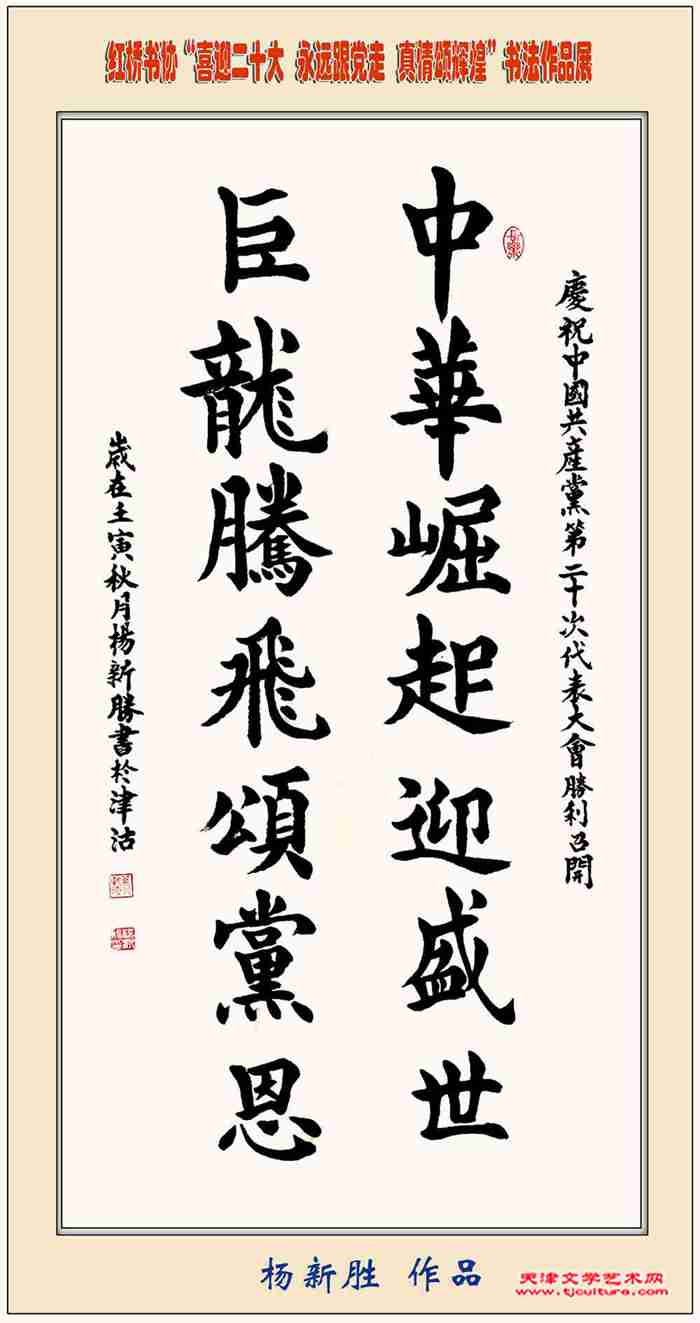 红桥书协“喜迎二十大 永远跟党走 真情颂辉煌”书法作品展
慶祝中國共產黨第二十次代表大會勝利召開
中華崛起迎盛世
巨龍騰飛頌黨恩
歲在壬寅秋月楊新勝書於津沽
杨新胜 作品
天津文学艺术网
www.tjculture.com